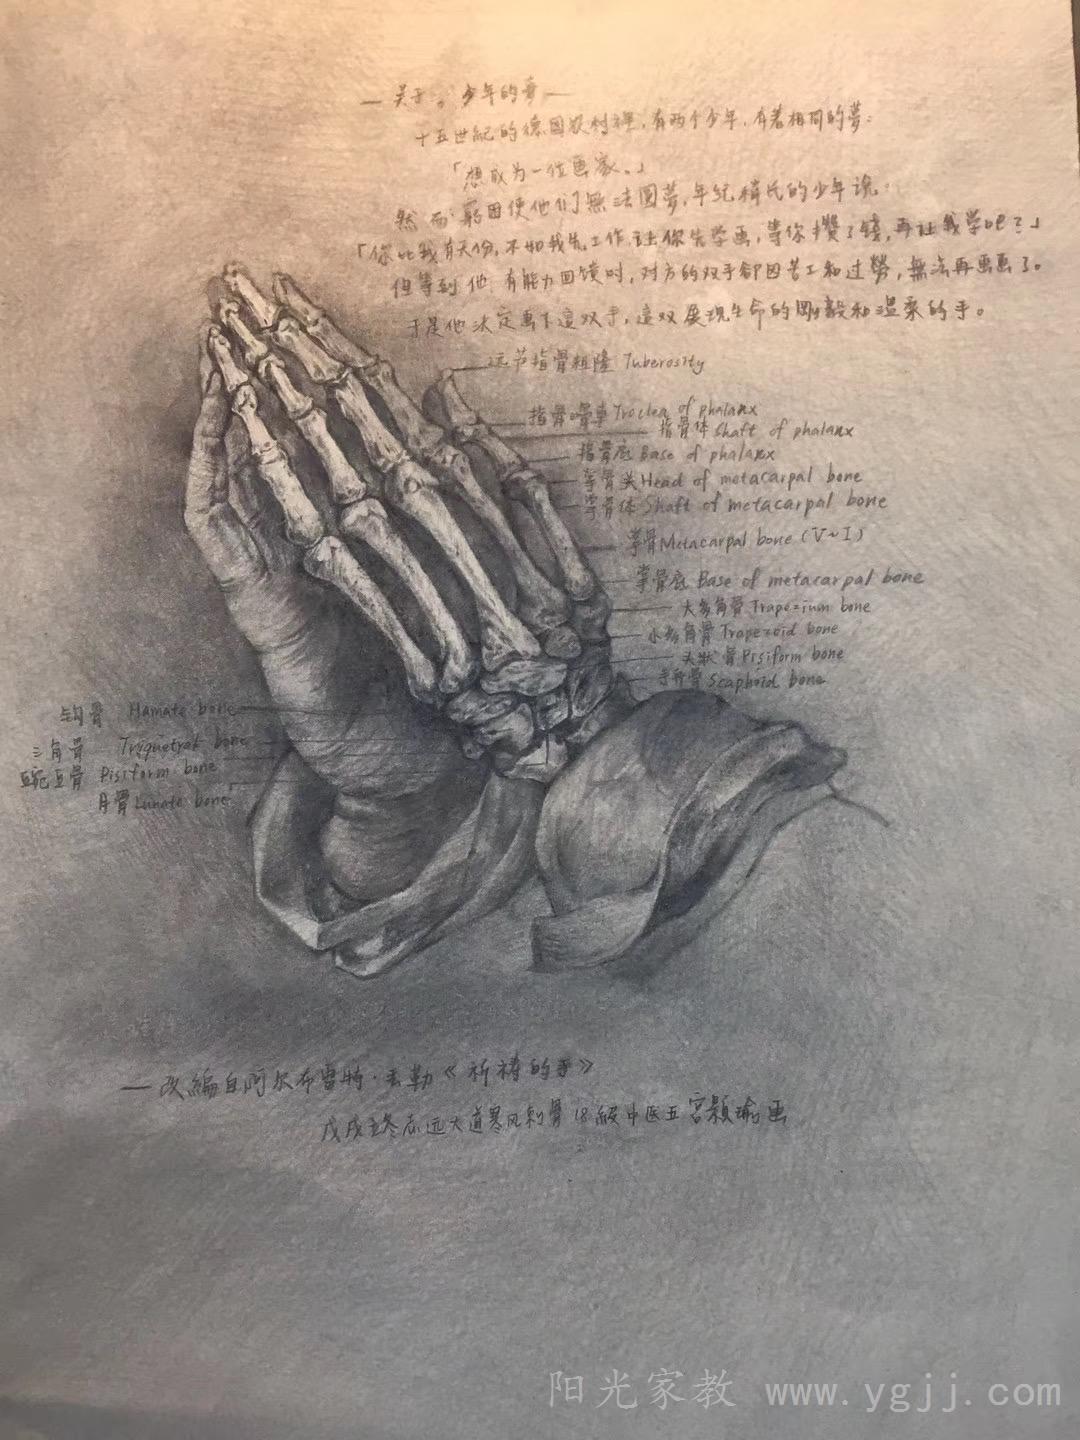 — 关于。少年的夢 —
十五世紀的德国农村裡,有两个少年,有着相同的夢:
「想成为一位画家。」
然而窮困使他们無法圆夢,年纪稍長的少年说:
「你比我有天份,不如我先工作,让你先学画,等你攒了錢,再让我学吧?」
但等到他有能力回馈时,对方的双手卻因苦工和过勞,無法再画画了。
于是他决定画下這双手,這双展现生命的剛毅和温柔的手。
远节指骨粗隆 Tuberosity
指骨滑車 Troclea of phalanx
指骨体 Shaft of phalanx
指骨底 Base of phalanx
掌骨头 Head of metacarpal bone
掌骨体 Shaft of metacarpal bone
掌骨 Metacarpal bone (V~I)
掌骨底 Base of metacarpal bone
大多角骨 Trapezium bone
小多角骨 Trapezoid bone
头狀骨 Pisiform bone
手舟骨 Scaphoid bone
钩骨 Hamate bone
三角骨 Triquetral bone
豌豆骨 Pisiform bone
月骨 Lunate bone
— 改編自阿尔布雷特·丢勒《祈祷的手》
戊戌 冬 远大道寒风刺骨 18級中医五 宫顥瑜画
阳光家教 www.ygjj.com